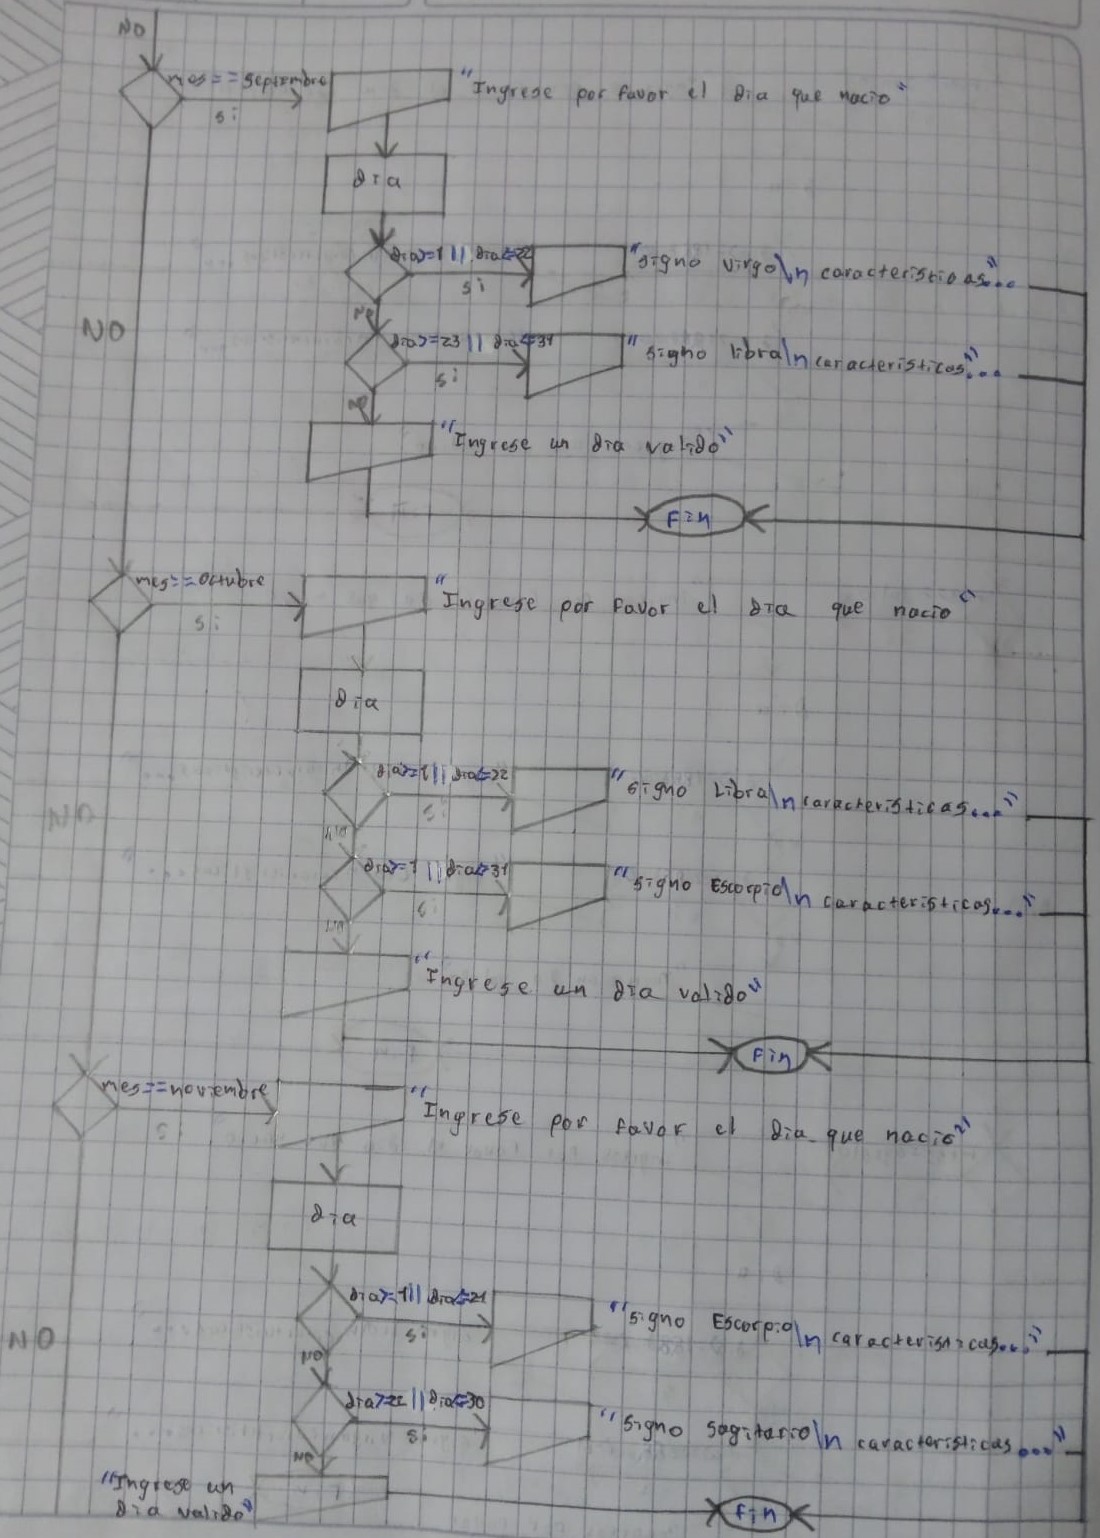 NO
mes==septembre
si
"Ingrese por favor el dia que nacio"
dia
dia>=1 || dia<=22
si
"signo virgo\n caracteristicas"...
NO
NO
dia>=23 || dia<=31
si
"signo libra\n caracteristicas"...
NO
"Ingrese un dia valido"
Fin
mes==Octubre
si
"Ingrese por favor el dia que nacio"
dia
dia>=1 || dia<=22
si
"signo Libra\n caracteristicas..."
NO
dia>=1 || dia<=31
si
"signo Escorpio\n caracteristicas..."
"Ingrese un dia valido"
Fin
mes==noviembre
"Ingrese por favor el dia que nacio"
dia
dia>=1 || dia<=21
si
"signo Escorpio\n caracteristicas..."
NO
NO
dia>22 || dia<=30
si
"signo Sagitario\n caracteristicas..."
NO
"Ingrese un
dia valido"
fin